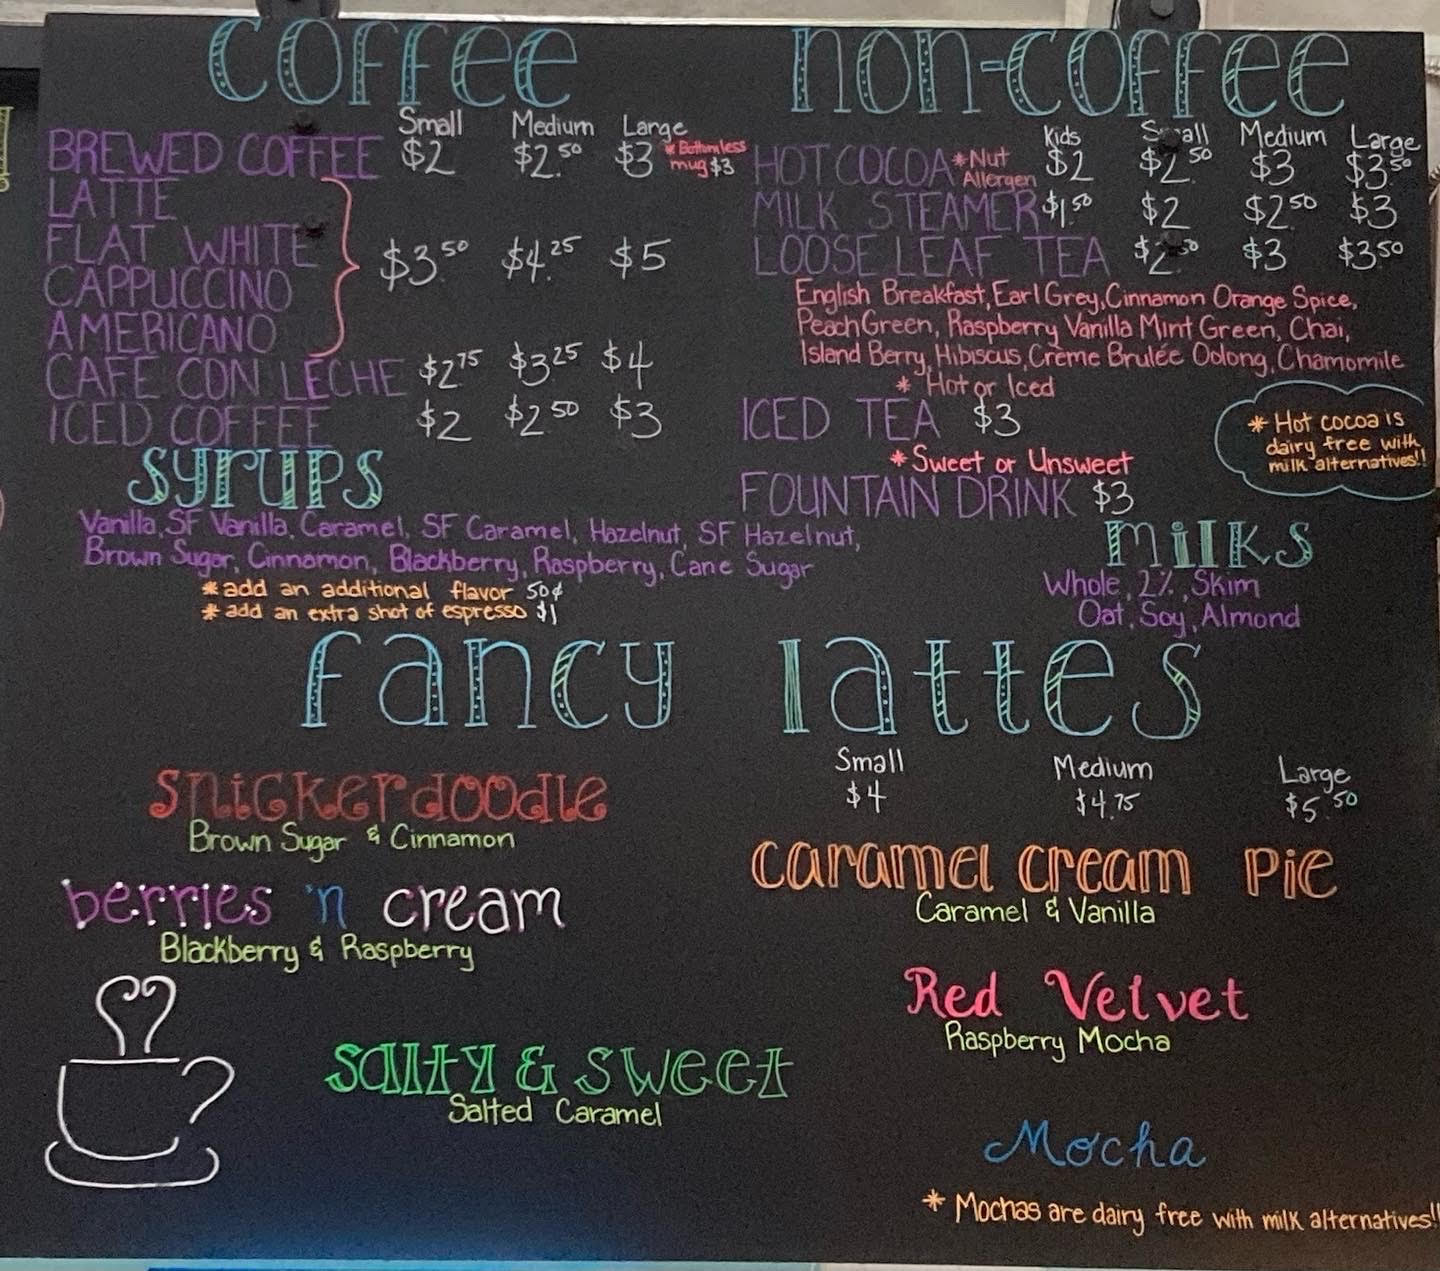 coffee
Small Medium Large
BREWED COFFEE $2 $2.50 $3 * Bottomless mug $3
LATTE
FLAT WHITE
CAPPUCCINO
AMERICANO
$3.50 $4.25 $5
CAFE CON LECHE $2.75 $3.25 $4
ICED COFFEE $2 $2.50 $3
syrups
Vanilla, SF Vanilla, Caramel, SF Caramel, Hazelnut, SF Hazelnut,
Brown Sugar, Cinnamon, Blackberry, Raspberry, Cane Sugar
* add an additional flavor 50¢
* add an extra shot of espresso $1
non-coffee
Kids Small Medium Large
HOT COCOA * Nut Allergen $2 $2.50 $3 $3.50
MILK STEAMER $1.50 $2 $2.50 $3
LOOSE LEAF TEA $2.50 $3 $3.50
English Breakfast, Earl Grey, Cinnamon Orange Spice,
Peach Green, Raspberry Vanilla Mint Green, Chai,
Island Berry, Hibiscus, Crème Brulée Oolong, Chamomile
* Hot or Iced
ICED TEA $3
* Sweet or Unsweet
FOUNTAIN DRINK $3
* Hot cocoa is
dairy free with
milk alternatives!!
milks
Whole, 2%, Skim
Oat, Soy, Almond
fancy lattes
Small Medium Large
$4 $4.75 $5.50
snickerdoodle
Brown Sugar & Cinnamon
berries 'n cream
Blackberry & Raspberry
salty & sweet
Salted Caramel
caramel cream pie
Caramel & Vanilla
Red Velvet
Raspberry Mocha
Mocha
* Mochas are dairy free with milk alternatives!!